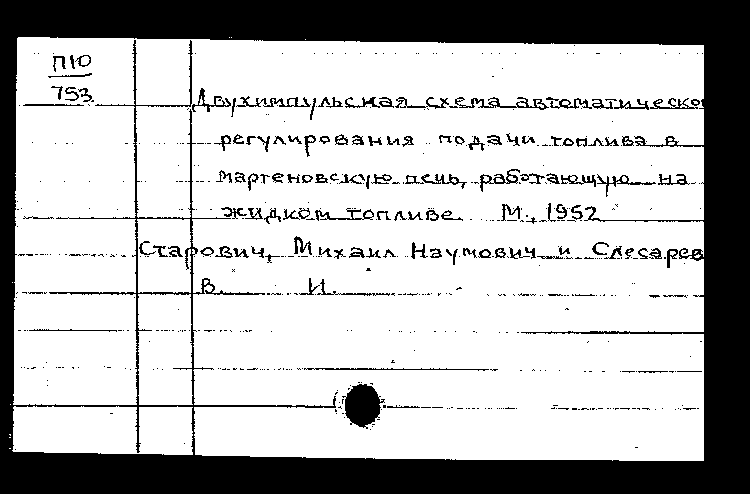 П10
753
Двухимпульсная схема автоматическо
регулирования подачи топлива в
мартеновскую печь, работающую на
жидком топливе. М., 1952
Старович, Михаил Наумович и Слесарев
В. И.